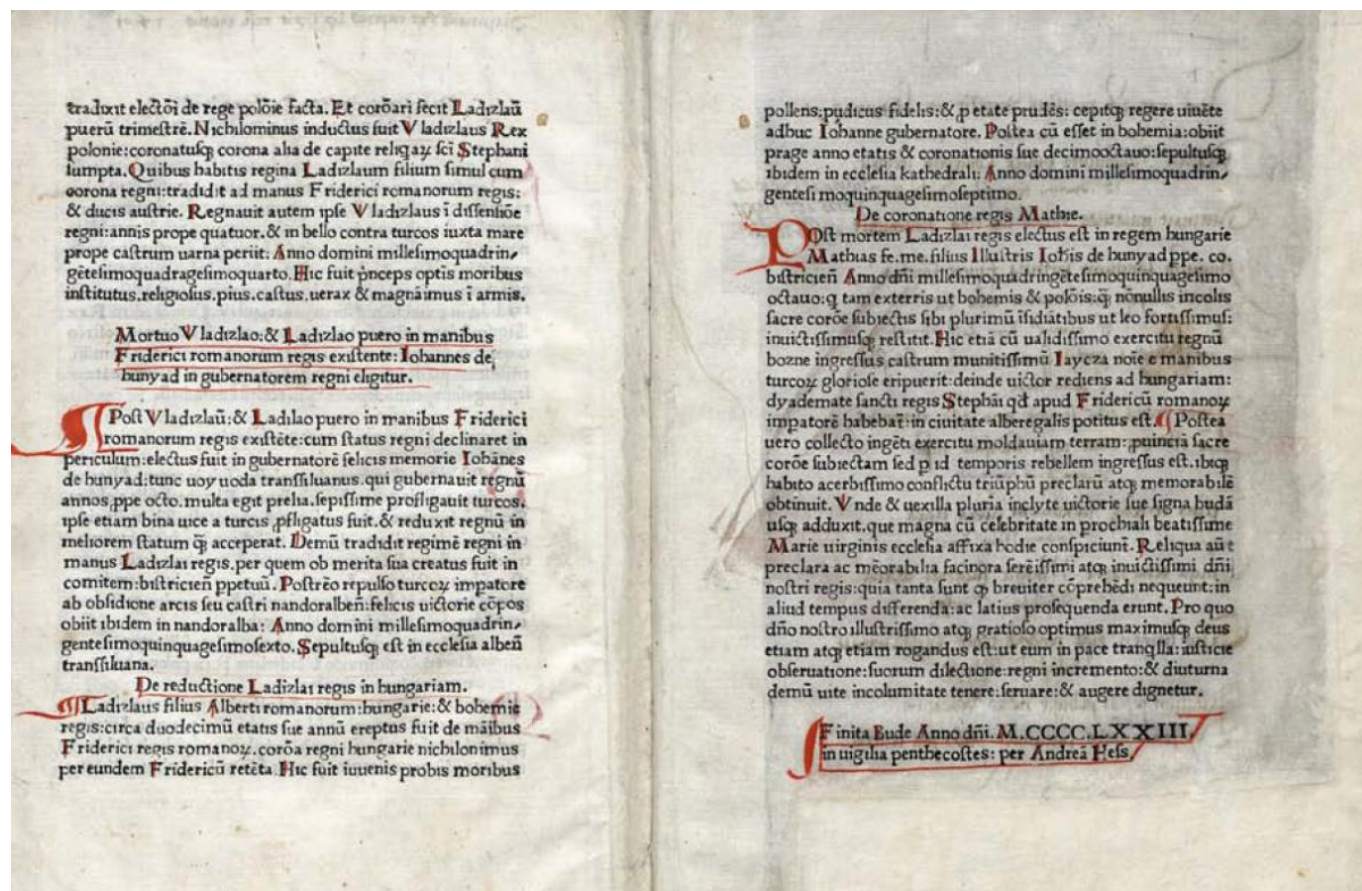 traduxit electōi de rege polōie facta. Et corōari fecit Ladizlaū
puerū trimestrē. Nichilominus inductus fuit Vladizlaus Rex
polonie: coronatusqꝫ corona alia de capite reliqaꝝ scī Stephani
sumpta. Quibus habitis regina Ladizlaum filium simul cum
corona regni: tradidit ad manus Friderici romanorum regis:
& ducis austrie. Regnauit autem ipse Vladizlaus ī dissensiōe
regni: annis prope quatuor. & in bello contra turcos iuxta mare
prope castrum uarna periit: Anno domini millesimoquadrin⸗
gētesimoquadragesimoquarto. Hic fuit pͥnceps optīs moribus
institutus. religiosus. pius. castus. uerax & magnāimus ī armis.
Mortuo Vladizlao: & Ladizlao puero in manibus
Friderici romanorum regis existente: Iohannes de
hunyad in gubernatorem regni eligitur.
¶ Post Vladizlaū: & Ladilao puero in manibus Friderici
romanorum regis existēte: cum status regni declinaret in
periculum: electus fuit in gubernatorē felicis memorie Iohānes
de hunyad: tunc uoyuoda transsiluanus. qui gubernauit regnū
annos ꝓpe octo. multa egit prelia. sepissime profligauit turcos.
ipse etiam bina uice a turcis ꝓfligatus fuit. & reduxit regnū in
meliorem statum q̄ꝫ acceperat. Demū tradidit regimē regni in
manus Ladizlai regis. per quem ob merita sua creatus fuit in
comitem: bistricieñ ꝑpetuū. Postrēo repulso turcoꝝ impatore
ab obsidione arcis seu castri nandoralbeñ: felicis uictorie cōpos
obiit ibidem in nandoralba: Anno domini millesimoquadrin⸗
gentesimoquinquagesimosexto. Sepultusqꝫ est in ecclesia albeñ
transsiluana.
De reductione Ladizlai regis in hungariam.
¶ Ladizlaus filius Alberti romanorum: hungarie: & bohemie
regis: circa duodecimū etatis sue annū ereptus fuit de māibus
Friderici regis romanoꝝ. corōa regni hungarie nichilonimus
per eundem Fridericū retēta. Hic fuit iuuenis probis moribus
pollens: pudicus fidelis: & ꝓ etate prudēs: cepitqꝫ regere uiuēte
adhuc Iohanne gubernatore. Postea cū esset in bohemia: obiit
prage anno etatis & coronationis sue decimooctauo: sepultusqꝫ
ibidem in ecclesia kathedrali: Anno domini millesimoquadrin⸗
gentesimoquinquagesimoseptimo.
De coronatione regis Mathie.
POst mortem Ladizlai regis electus est in regem hungarie
Mathias fe. me. filius Illustris Iohīs de hunyad ꝑpe. co.
bistricieñ Anno dñi millesimoquadringētesimoquinquagesimo
octauo: q tam exterris ut bohemis & polōis: q̄ꝫ nōnullis incolis
sacre corōe subiectis sibi plurimū īsidiātibus ut leo fortissimus:
inuictissimusqꝫ restitit. Hic etiā cū ualidissimo exercitu regnū
bozne ingressus castrum munitissimū Iaycza noīe e manibus
turcoꝝ gloriose eripuerit: deinde uictor rediens ad hungariam:
dyademate sancti regis Stephāi qd apud Fridericū romanoꝝ
impatorē habebat̄: in ciuitate alberegalis potitus est. ¶ Postea
uero collecto ingēti exercitu moldauiam terram: ꝓuinciā sacre
corōe subiectam sed ꝑ id temporis rebellem ingressus est. ibiqꝫ
habito acerbissimo conflictu triūphū preclarū atqꝫ memorabilē
obtinuit. Vnde & uexilla pluria inclyte uictorie sue signa budā
usqꝫ adduxit. que magna cū celebritate in prochiali beatissime
Marie uirginis ecclesia affixa hodie conspiciunt̄. Reliqua aūt
preclara ac mēorabilia facinora serēissimi atqꝫ inuictissimi dñi
nostri regis: quia tanta sunt ꝙ breuiter cōprehēdi nequeunt: in
aliud tempus differenda: ac latius prosequenda erunt. Pro quo
dño nostro illustrissimo atqꝫ gratioso optimus maximusqꝫ deus
etiam atqꝫ etiam rogandus est: ut eum in pace tranqͥlla: iusticie
obseruatione: suorum dilectione: regni incremento: & diuturna
demū uite incolumitate tenere: seruare: & augere dignetur.
Finita Bude Anno dñi. M.CCCC.LXXIII.
in uigilia penthecostes: per Andreā Hess.